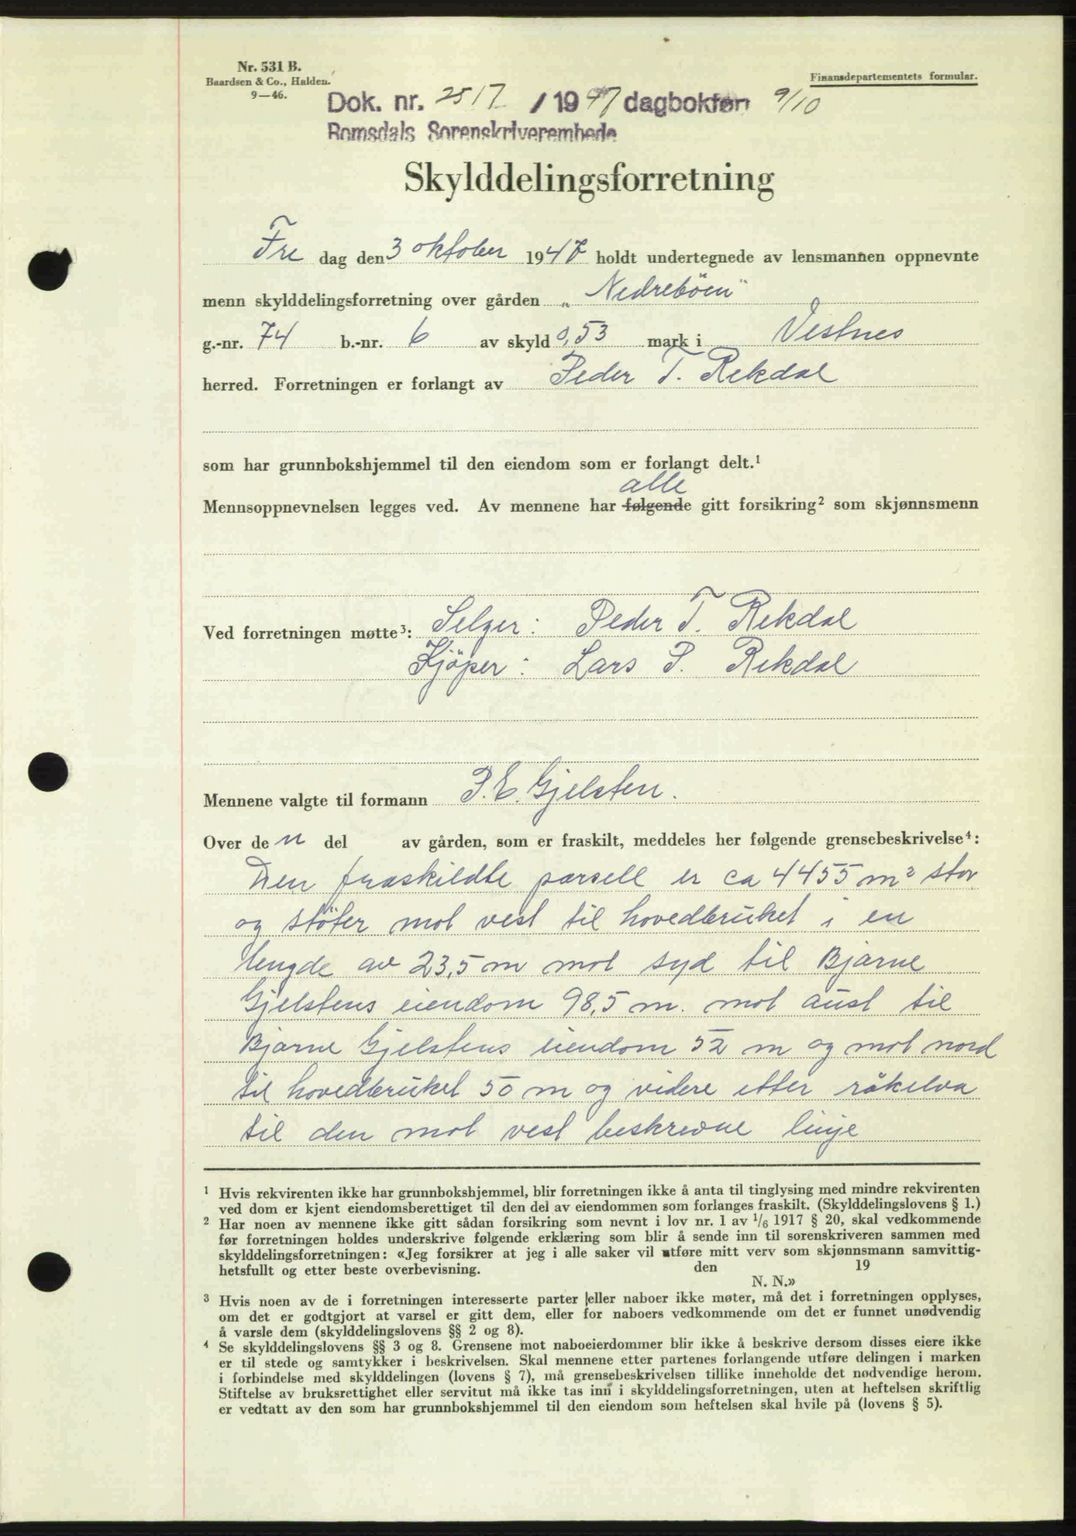 Nr. 531 B.
Baardsen & Co., Halden.
9—46.
Finansdepartementets formular.
Dok. nr. 2517 / 1947 dagbokført 9/10
Romsdals Sorenskriverembede
Skylddelingsforretning
Fre dag den 3 oktober 1947 holdt undertegnede av lensmannen oppnevnte
menn skylddelingsforretning over gården „Nedreböen"
g.-nr. 74 b.-nr. 6 av skyld 0,53 mark i Vestnes
herred. Forretningen er forlangt av Peder T. Rekdal
som har grunnbokshjemmel til den eiendom som er forlangt delt.¹
alle
Mennsoppnevnelsen legges ved. Av mennene har følgende gitt forsikring² som skjønnsmenn
Ved forretningen møtte³: Selger: Peder T. Rekdal
Kjöper: Lars P. Rekdal
Mennene valgte til formann P. E. Gjelsten.
Over den del av gården, som er fraskilt, meddeles her følgende grensebeskrivelse⁴:
Den fraskildte parsell er ca 4455 m² stor
og stöter mot vest til hovedbruket i en
lengde av 23,5 m mot syd til Bjarne
Gjelstens eiendom 98,5 m. mot aust til
Bjarne Gjelstens eiendom 52 m og mot nord
til hovedbruket 50 m og videre etter råkelva
til den mot vest beskrevne linje
¹ Hvis rekvirenten ikke har grunnbokshjemmel, blir forretningen ikke å anta til tinglysing med mindre rekvirenten
ved dom er kjent eiendomsberettiget til den del av eiendommen som forlanges fraskilt. (Skylddelingslovens § 1.)
² Har noen av mennene ikke gitt sådan forsikring som nevnt i lov nr. 1 av 1/6 1917 § 20, skal vedkommende
før forretningen holdes underskrive følgende erklæring som blir å sende inn til sorenskriveren sammen med
skylddelingsforretningen: «Jeg forsikrer at jeg i alle saker vil utføre mitt verv som skjønnsmann samvittig-
hetsfullt og etter beste overbevisning. den 19
N. N.»
³ Hvis noen av de i forretningen interesserte parter eller naboer ikke møter, må det i forretningen opplyses,
om det er godtgjort at varsel er gitt dem, eller for naboers vedkommende om det er funnet unødvendig
å varsle dem (skylddelingslovens §§ 2 og 8).
⁴ Se skylddelingslovens §§ 3 og 8. Grensene mot naboeierdommer blir ikke å beskrive dersom disses eiere ikke
er til stede og samtykker i beskrivelsen. Skal mennene etter partenes forlangende utføre delingen i marken
i forbindelse med skylddelingen (lovens § 7), må grensebeskrivelsen tillike inneholde det nødvendige herom.
Stiftelse av bruksrettighet eller servitut må ikke tas inn i skylddelingsforretningen, uten at heftelsen skriftlig
er vedtatt av den som har grunnbokshjemmel til den eiendom som heftelsen skal hvile på (lovens § 5).